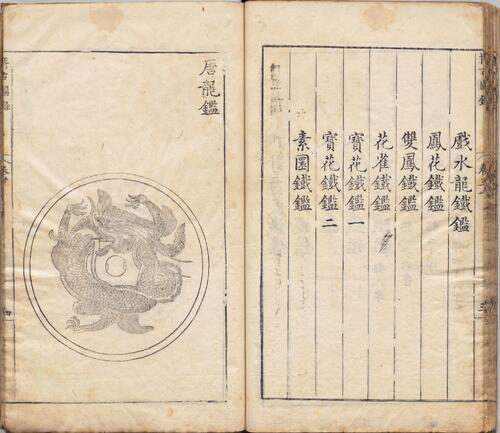 戲水龍鐵鑑
鳳花鐵鑑
雙鳳鐵鑑
花雀鐵鑑
寶花鐵鑑一
寶花鐵鑑二
素圓鐵鑑
唐龍鑑